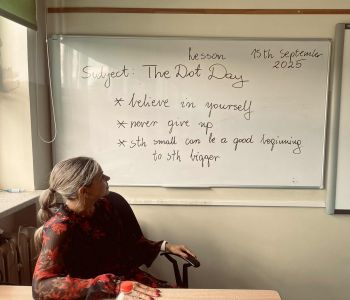 Lesson 15th September
2025
Subject: The Dot Day
* believe in yourself
* never give up
* sth small can be a good beginning
to sth bigger